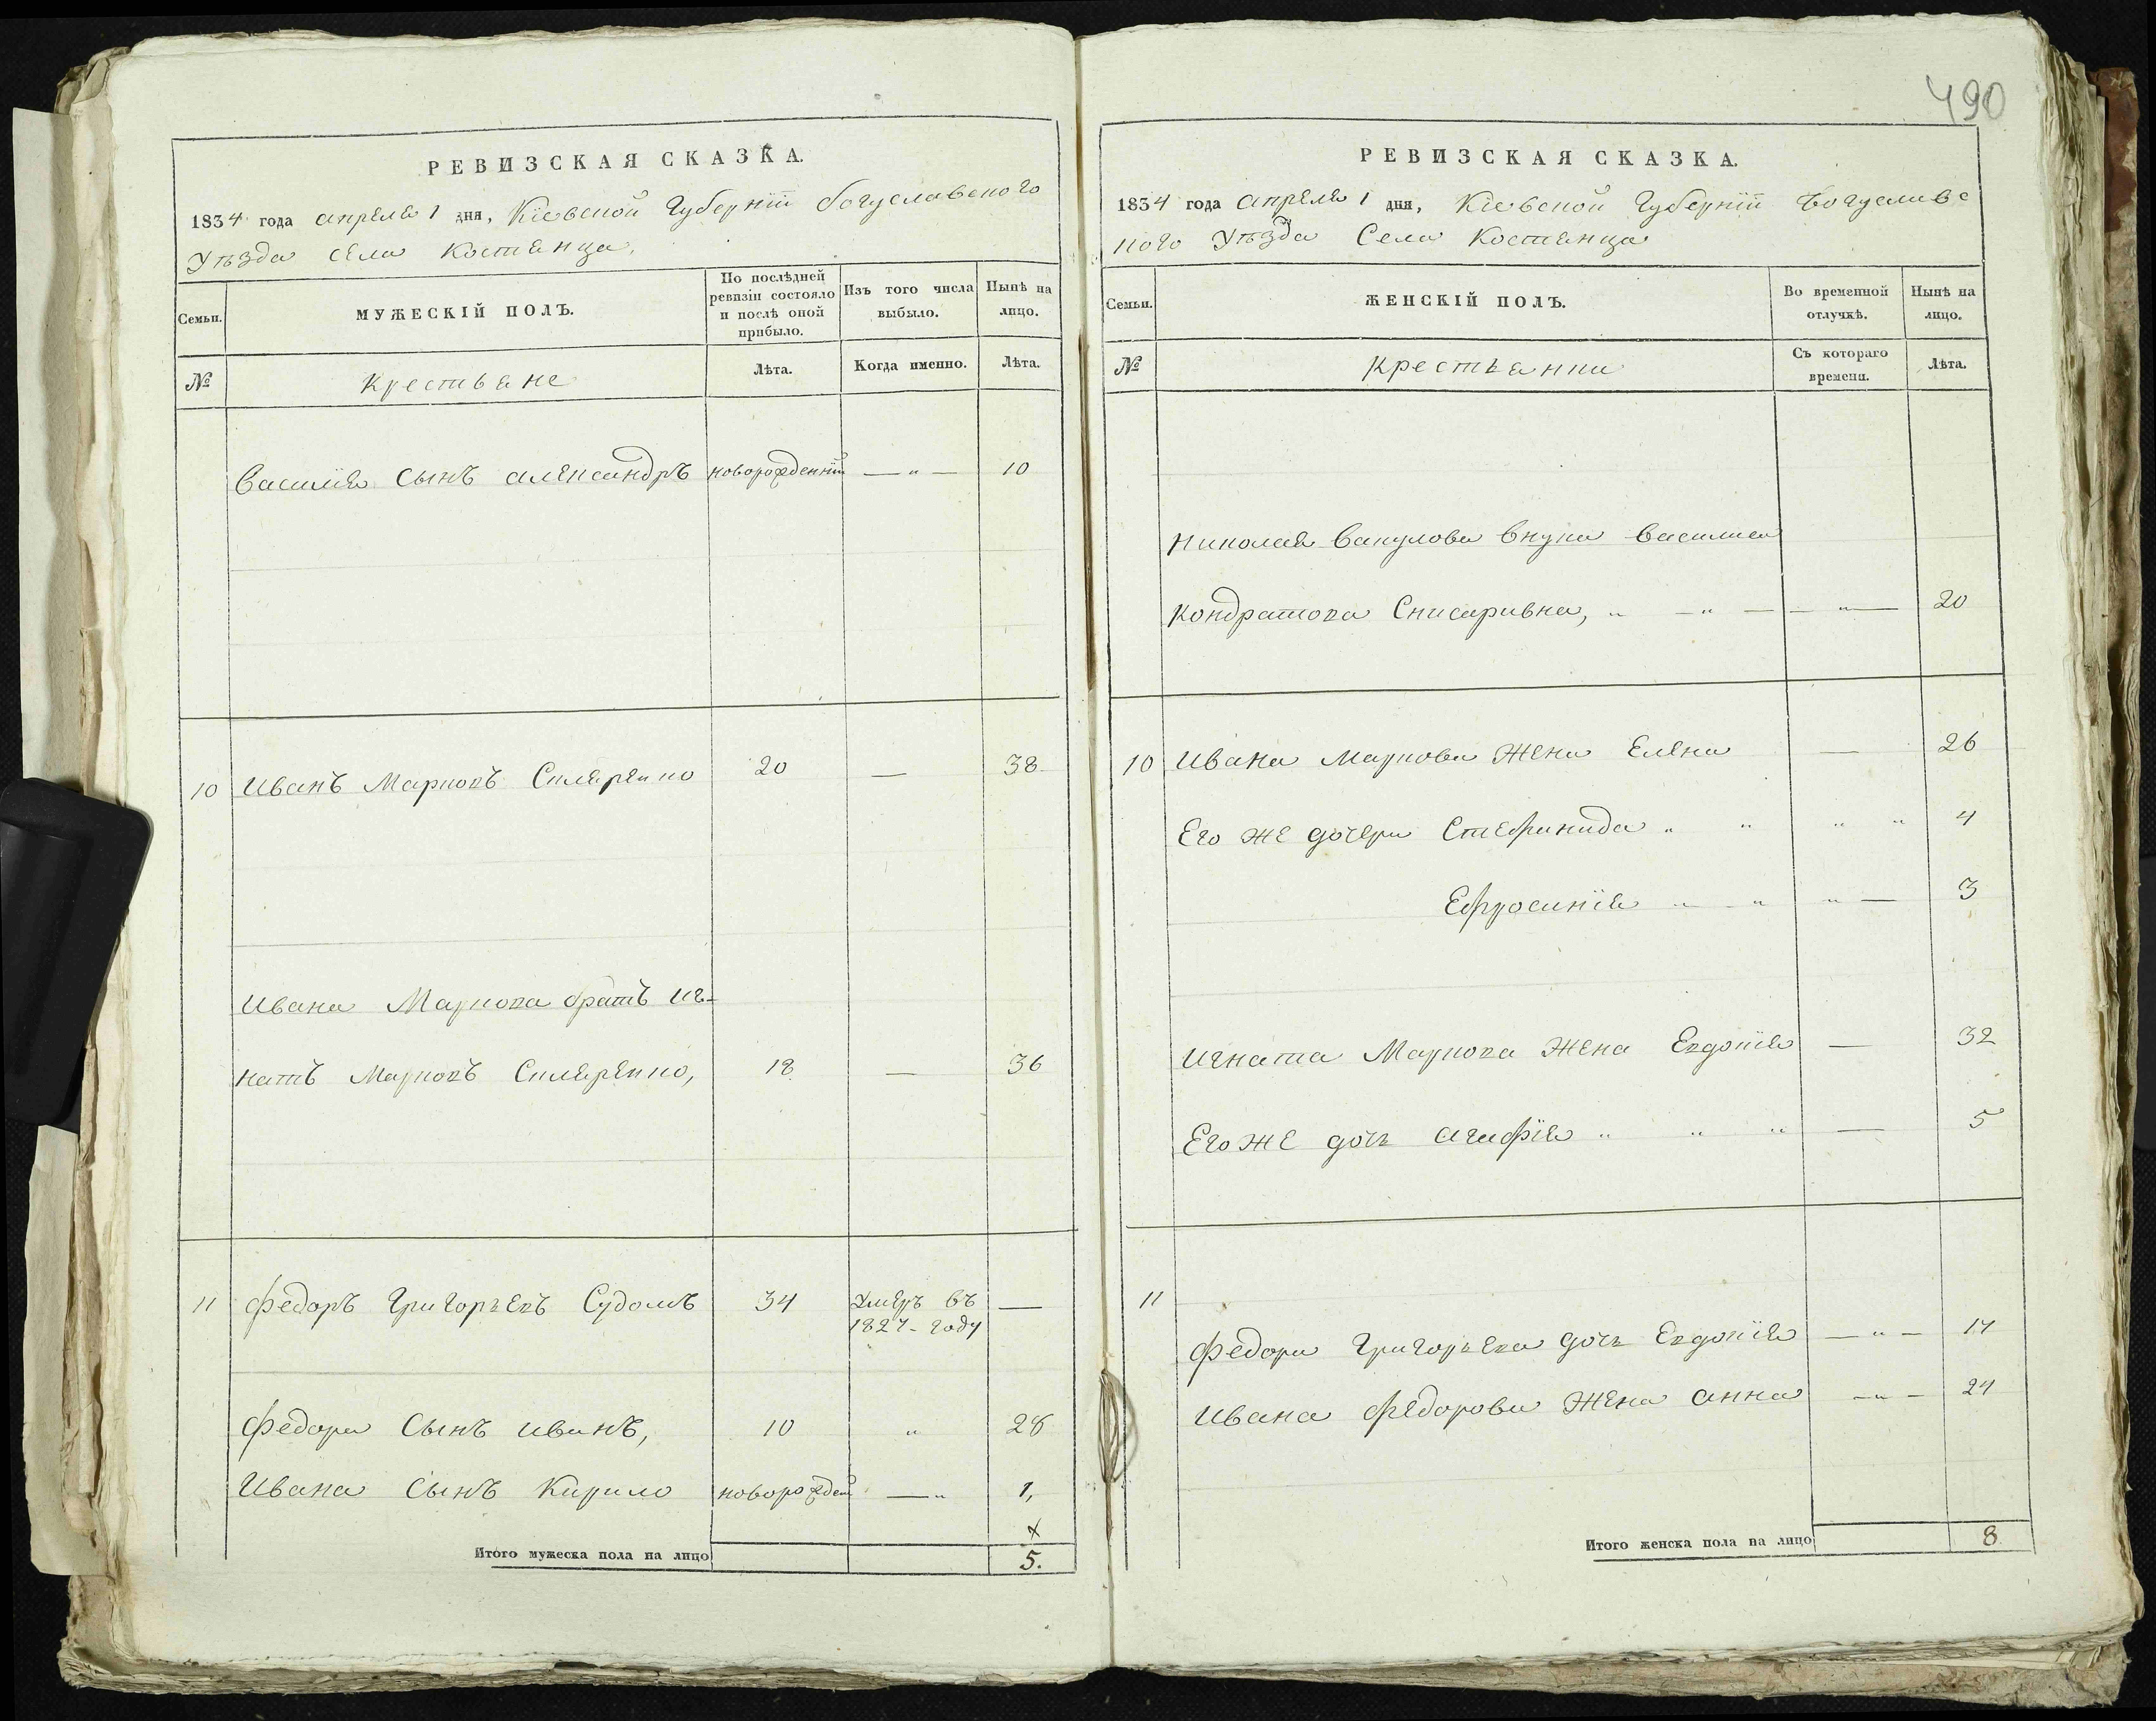 490
РЕВИЗСКАЯ СКАЗКА.
1834 года апреля 1 дня, Кіевской Губерніи богуславского
Уѣзда села Костянца.
Семьи.
МУЖЕСКІЙ ПОЛЪ.
По послѣдней ревизіи состояло и послѣ оной прибыло.
Изъ того числа выбыло.
Нынѣ на лицо.
№
Крестьяне
Лѣта.
Когда именно.
Лѣта.
Василія сынъ александръ новорожденній — " — 10
10 Иванъ Марковъ Скляренко 20 — 38
Ивана Маркова братъ Иг-
натъ Марковъ Скляренко, 18 — 36
11 Федоръ Григорьевъ Судомъ 34 Умеръ въ —
1827- году
Федора Сынъ иванъ, 10 " 28
Ивана Сынъ Кирило новорожден — " 1,
х
Итого мужеска пола на лицо 5.
РЕВИЗСКАЯ СКАЗКА.
1834 года апреля 1 дня, Кіевской Губерніи Богуславс
кого Уѣзда Села Костянца
Семьи.
ЖЕНСКІЙ ПОЛЪ.
Во временной отлучкѣ.
Нынѣ на лицо.
№
Крестьянки
Съ котораго времени.
Лѣта.
Николая Вакулова внука Василиса
Кондратова Снисаривна, " — " — — " — 20
10 Ивана Маркова Жена Елена — 26
Его же дочери Стефанида " " " " 4
Ефросинія " — " " — 3
Игната Маркова Жена Евдокія — 32
Его же дочь Агафія " " " — 5
11
Федора Григорьева дочь Евдокія — " — 17
Ивана Федорова Жена Анна — " — 24
Итого женска пола на лицо 8.